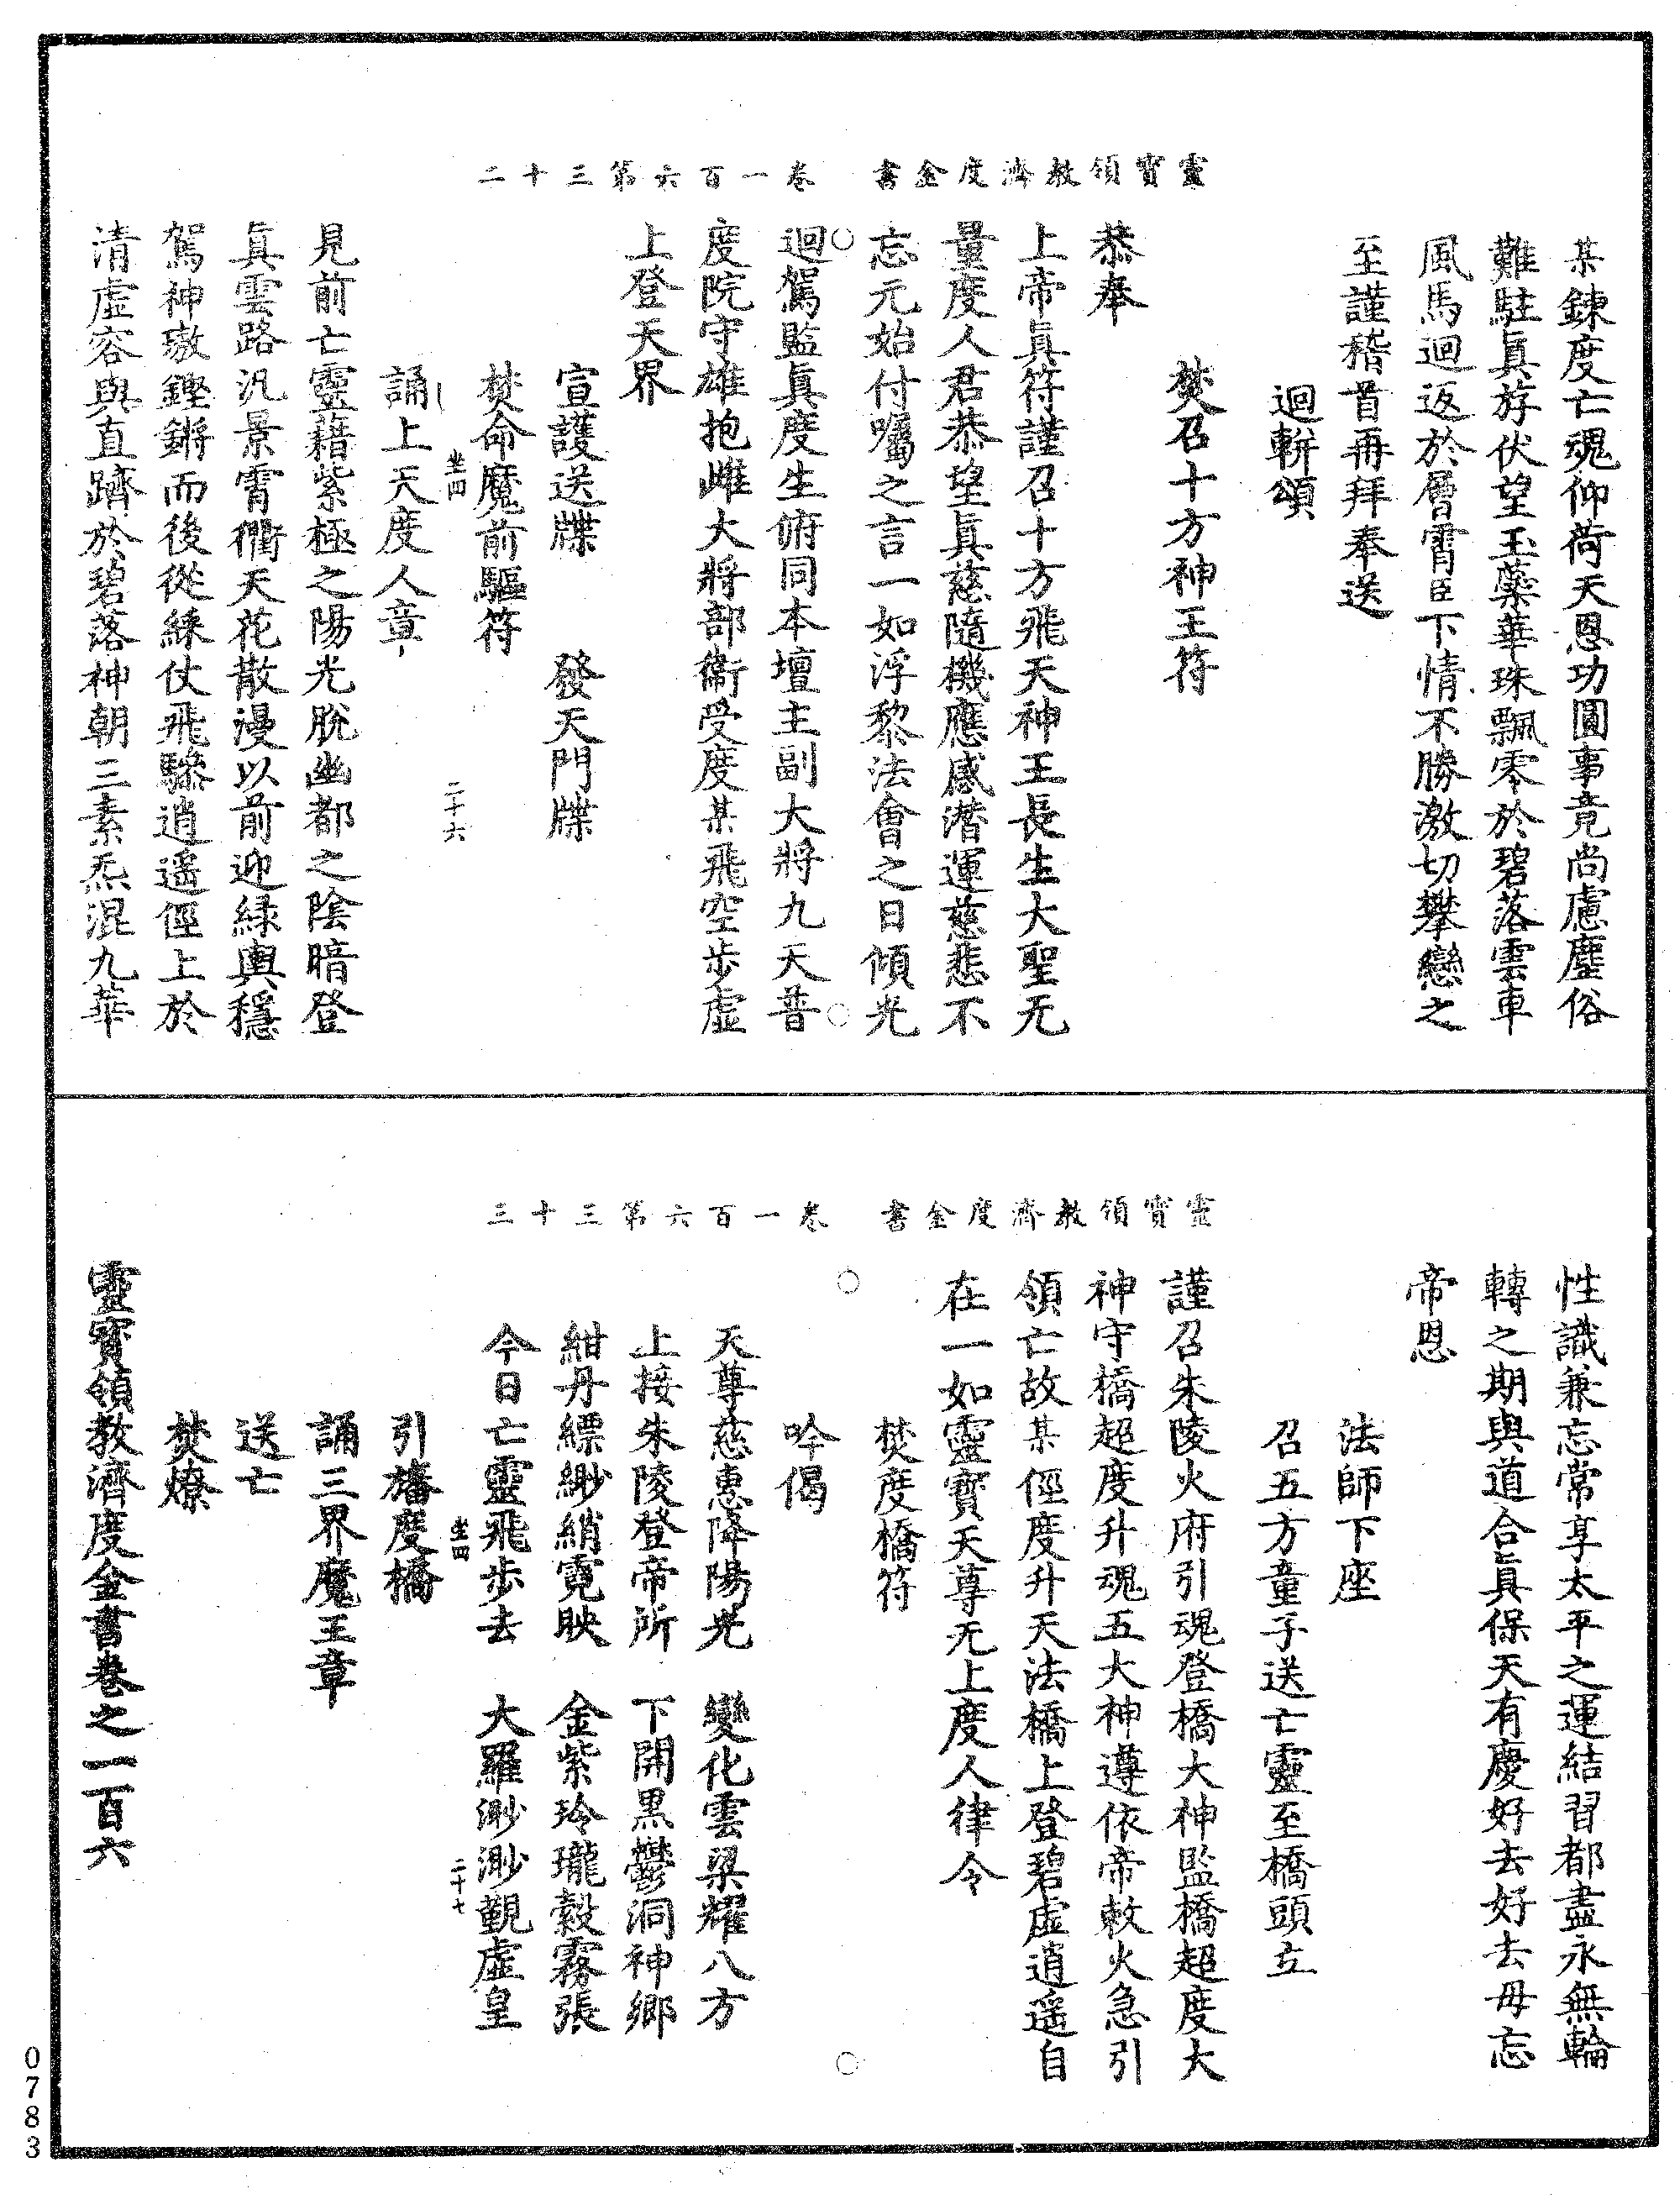 靈寶領教濟度金書　卷一百六第三十二
某鍊度亡魂仰荷天恩功圓事竟尚慮塵俗
難駐眞斿伏望玉蘂華珠飄零於碧落雲車
風馬迴返於層霄臣下情不勝激切攀戀之
至謹稽首再拜奉送
迴軿頌
焚召十方神王符
恭奉
上帝眞符謹召十方飛天神王長生大聖无
量度人君恭望眞慈隨機應感潛運慈悲不
忘元始付囑之言一如浮黎法會之日傾光
迴駕監眞度生俯同本壇主副大將九天普
度院守雄抱雌大將部衞受度某飛空步虛
上登天界
宣護送牒　發天門牒
焚命魔前驅符
坐四　二十六
誦上天度人章
見前亡靈藉紫極之陽光脫幽都之陰暗登
眞雲路汎景霄衢天花散漫以前迎綠輿穩
駕神璈鏗鏘而後從綵仗飛驂逍遙徑上於
清虛容與直躋於碧落神朝三素炁混九華
靈寶領教濟度金書　卷一百六第三十三
性識兼忘常享太平之運結習都盡永無輪
轉之期與道合眞保天有慶好去好去毋忘
帝恩
法師下座
召五方童子送亡靈至橋頭立
謹召朱陵火府引魂登橋大神監橋超度大
神守橋超度升魂五大神遵依帝敕火急引
領亡故某徑度升天法橋上登碧虛逍遙自
在一如靈寶天尊无上度人律令
焚度橋符
吟偈
天尊慈惠降陽光　變化雲梁耀八方
上接朱陵登帝所　下開黑鬱洞神鄉
紺丹縹緲綃霓映　金紫玲瓏縠霧張
今日亡靈飛步去　大羅渺渺覲虛皇
坐四　二十七
引旛度橋
誦三界魔王章
送亡
焚燎
靈寶領教濟度金書卷之一百六
0783